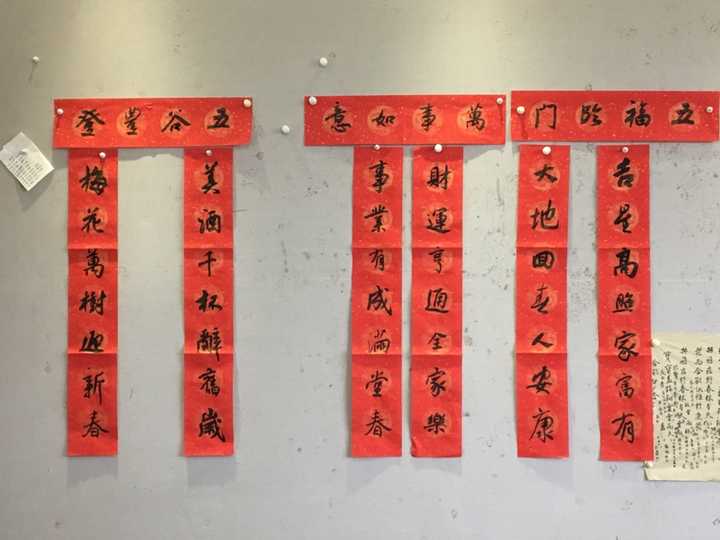 五福临门
吉星高照家富有
大地回春人安康
萬事如意
財運亨通全家樂
事業有成滿堂春
五谷豐登
美酒千杯辭舊歲
梅花萬樹迎新春